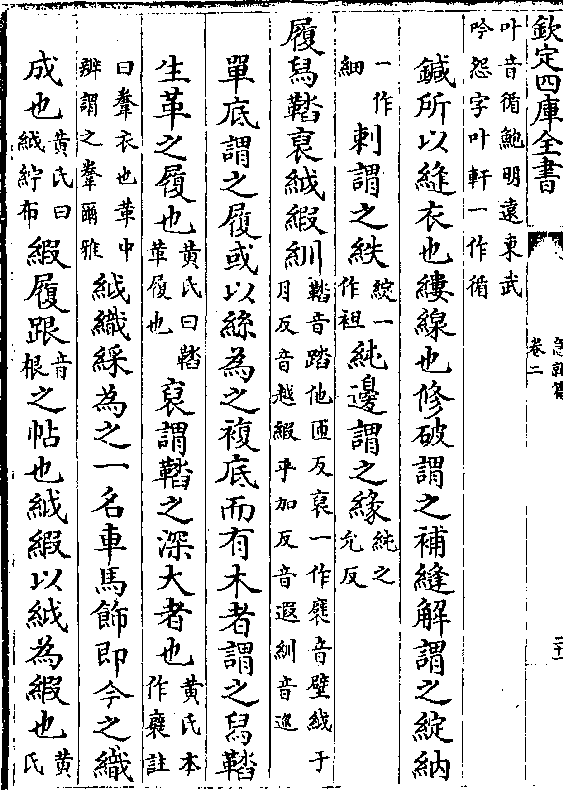 欽定四庫全書
急就篇
卷二
叶音循鮑明遠東武
吟怨字叶軒一作循
鍼所以縫衣也縷線也修破謂之補縫解謂之綻納
一作細刺謂之紩綻一作袒純邊謂之緣純之允反
履舄鞜裒䋐緞紃鞜音踏他匝反裒一作襞音壁䋐于月反音越緞乎加反音遐紃音巡
單底謂之履或以絲為之複底而有木者謂之舄鞜
生革之履也黄氏曰鞜革履也裒謂鞜之深大者也黄氏本作襞註
曰韏衣也革中辨謂之韏爾雅䋐織綵為之一名車馬飾即今之織
成也黄氏曰䋐紵布緞履跟音根之帖也䋐緞以䋐為緞也黄氏